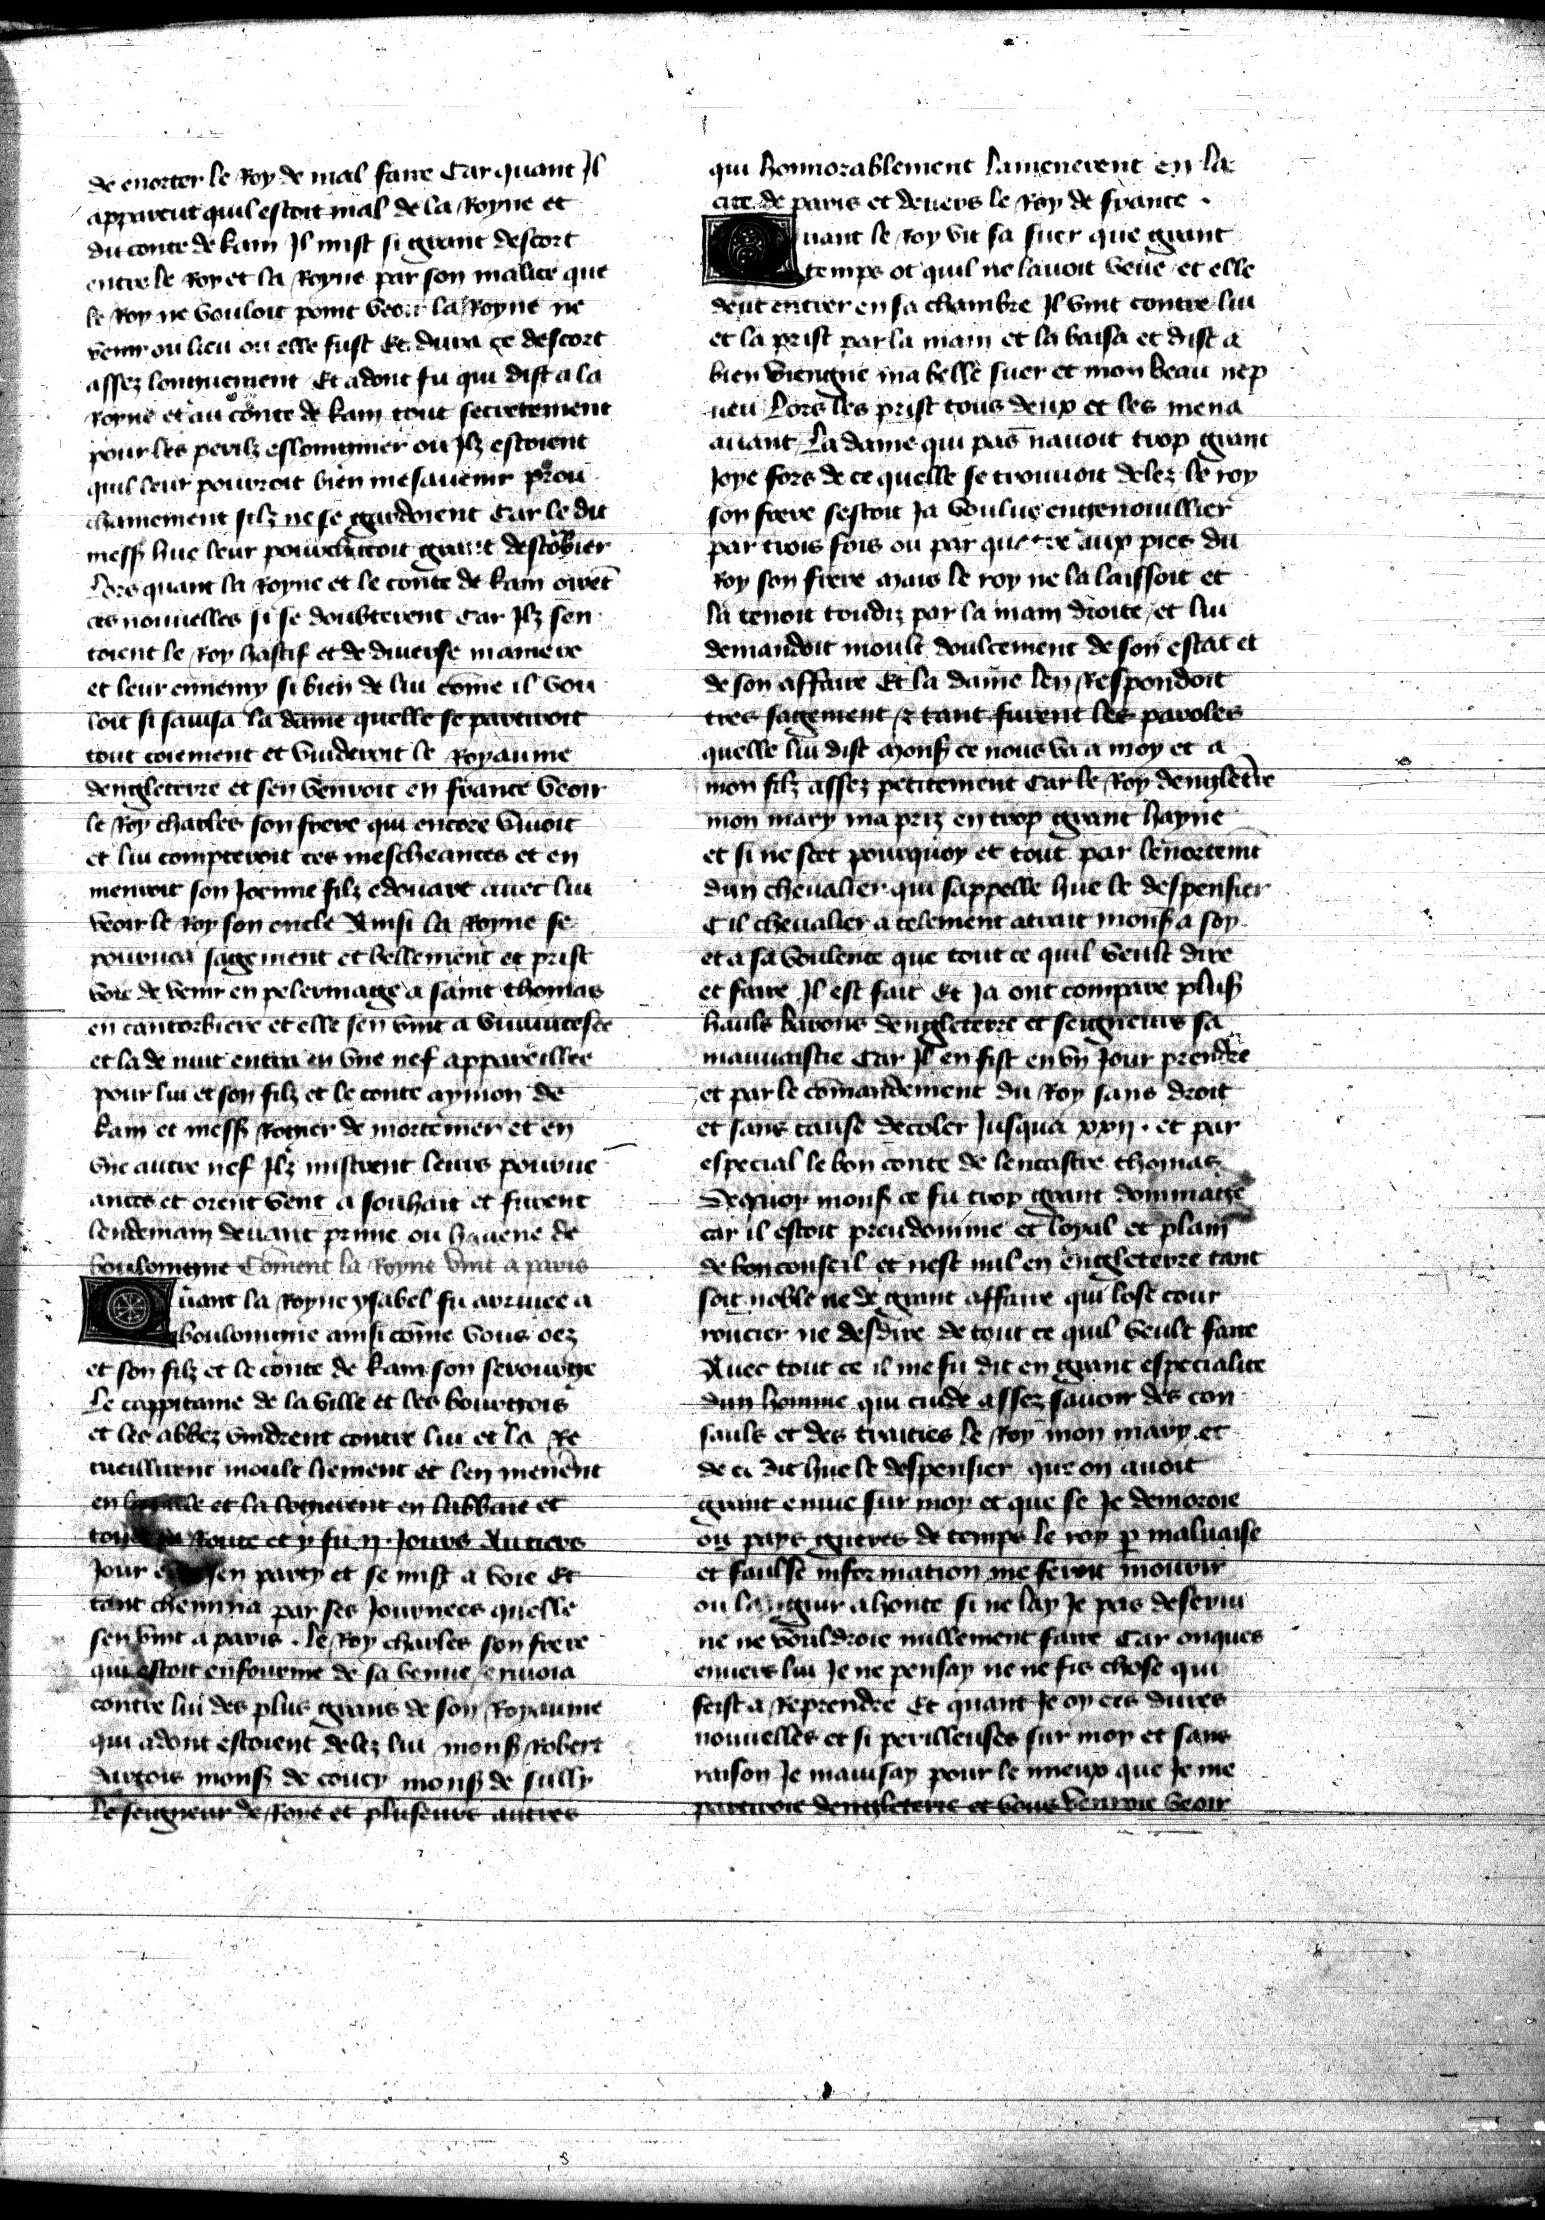 de enorter le Roy de mal faire Car quant Il
apparcut quil estoit mal de la Royne et
du conte de kain Il mist si grant descort
entre le Roy et la Royne par son malice que
le Roy ne vouloit point veoir la Royne ne
venir ou lieu ou elle fust Et dura ce descort
assez longuement Et adont fu qui dist a la
Royne et au conte de kain tout secretement
pour les perilz eslongnier ou Ilz estoient
quil leur pourroit bien mesavenir prou
chainement silz ne se gardoient Car le dit
messr hue leur pourchacoit grant destorbier
Lors quant la Royne et le conte de kain oiret
ces nouvelles si se doubterent Car Ilz sen
toient le Roy hastif et de diverse maniere
et leur ennemy si bien de lui come il vou
loit si savisa la dame quelle se partiroit
tout coiement et vuideroit le Royaume
dengleterre et sen venroit en france veoir
le Roy charles son frere qui encore vivoit
et lui compteroit ces mescheances et en
menroit son Joenne filz edouart avec lui
veoir le Roy son oncle Ainsi la Royne se
pourvea sagement et bellement et prist
voie de venir en pelerinage a saint thomas
en cantorbiere et elle sen vint a
et la de nuit entra en vne nef appareillee
pour lui et son filz et le conte aymon de
kain et messr Rogier de mortemer et en
vne autre nef Ilz mistrent leurs pourve
ances et orent vent a souhait et furent
lendemain devant prime ou havene de
boulongne Coment la Royne vint a paris
Quant la Royne ysabel fu arrivee a
boulongne ainsi come vous oez
et son filz et le conte de kain son serourge
Le cappitaine de la ville et les bourgois
et les abbez vindrent contre lui et la Re
cueillirent moult liement et len menerent
en et la logierent en labbaie et
Route et y fu ij. Jours Au tiers
Jour sen party et se mist a voie Et
tant chemina par ses Journees quelle
sen vint a paris . le Roy charles son frere
qui estoit enfourme de sa venue envoia
contre lui des plus grans de son Royaume
qui adont estoient delez lui monsr Robert
dartois monsr de coucy monsr de sully
Le seigneur de Roye et pluseurs autres
qui honnorablement lamenerent en la
cite de paris et devers le Roy de france .
Quant le Roy vit sa suer que grant
temps ot quil ne lavoit veue et elle
deut entrer en sa chambre Il vint contre lui
et la prist par la main et la baisa et dist a
bien viengne ma belle suer et mon beau nep
veu Lors les prist tous deux et les mena
avant La dame qui pas navoit trop grant
Joye fors de ce quelle se trouvoit delez le roy
son frere sestoit Ja voulue engenouillier
par trois fois ou par quatre aux pies du
Roy son frere mais le roy ne la laissoit et
la tenoit toudiz par la main droite et lui
demandoit moult doulcement de son estat et
de son affaire Et la dame len Respondoit
tres sagement et tant furent les paroles
quelle lui dist monsr ce nous va a moy et a
mon filz assez petitement Car le Roy dengleterre
mon mary ma priz en trop grant hayne
et si ne scet pourquoy et tout par lenortemt
dun chevalier qui sappelle hue le despensier
Cil chevalier a telement atrait monsr a soy
et a sa voulente que tout ce quil veult dire
et faire Il est fait Et Ja ont compare plusr
hauls barons dengleterre et seigneurs sa
mauvaistie Car Il en fist en vn Jour prendre
et par le comandement du Roy sans droit
et sans cause decoler Jusqua xxij . et par
especial le bon conte de lencastre thomas
De quoy monsr ce fu trop grant dommage
car il estoit preudomme et loyal et plain
de bon conseil et nest nul en engleterre tant
soit noble ne de grant affaire qui lose cour
roucier ne desdire de tout ce quil veult faire
Avec tout ce il me fu dit en grant especialite
dun homme qui cuide assez savoir des con
sauls et des traities le Roy mon mary et
de ce dit hue le despensier que on avoit
grant envie sur moy et que se Je demoroie
ou pays gueres de temps le roy p malvaise
et faulse information me feroit mourir
ou languir a honte si ne lay Je pas deservi
ne ne vouldroie nullement faire Car onques
envers lui Je ne pensay ne ne fis chose qui
feist a Reprendre Et quant Je oy ces dures
nouvelles et si perilleuses sur moy et sans
raison Je mavisay pour le mieux que Je me
partiroie dengleterre et vous venroie veoir